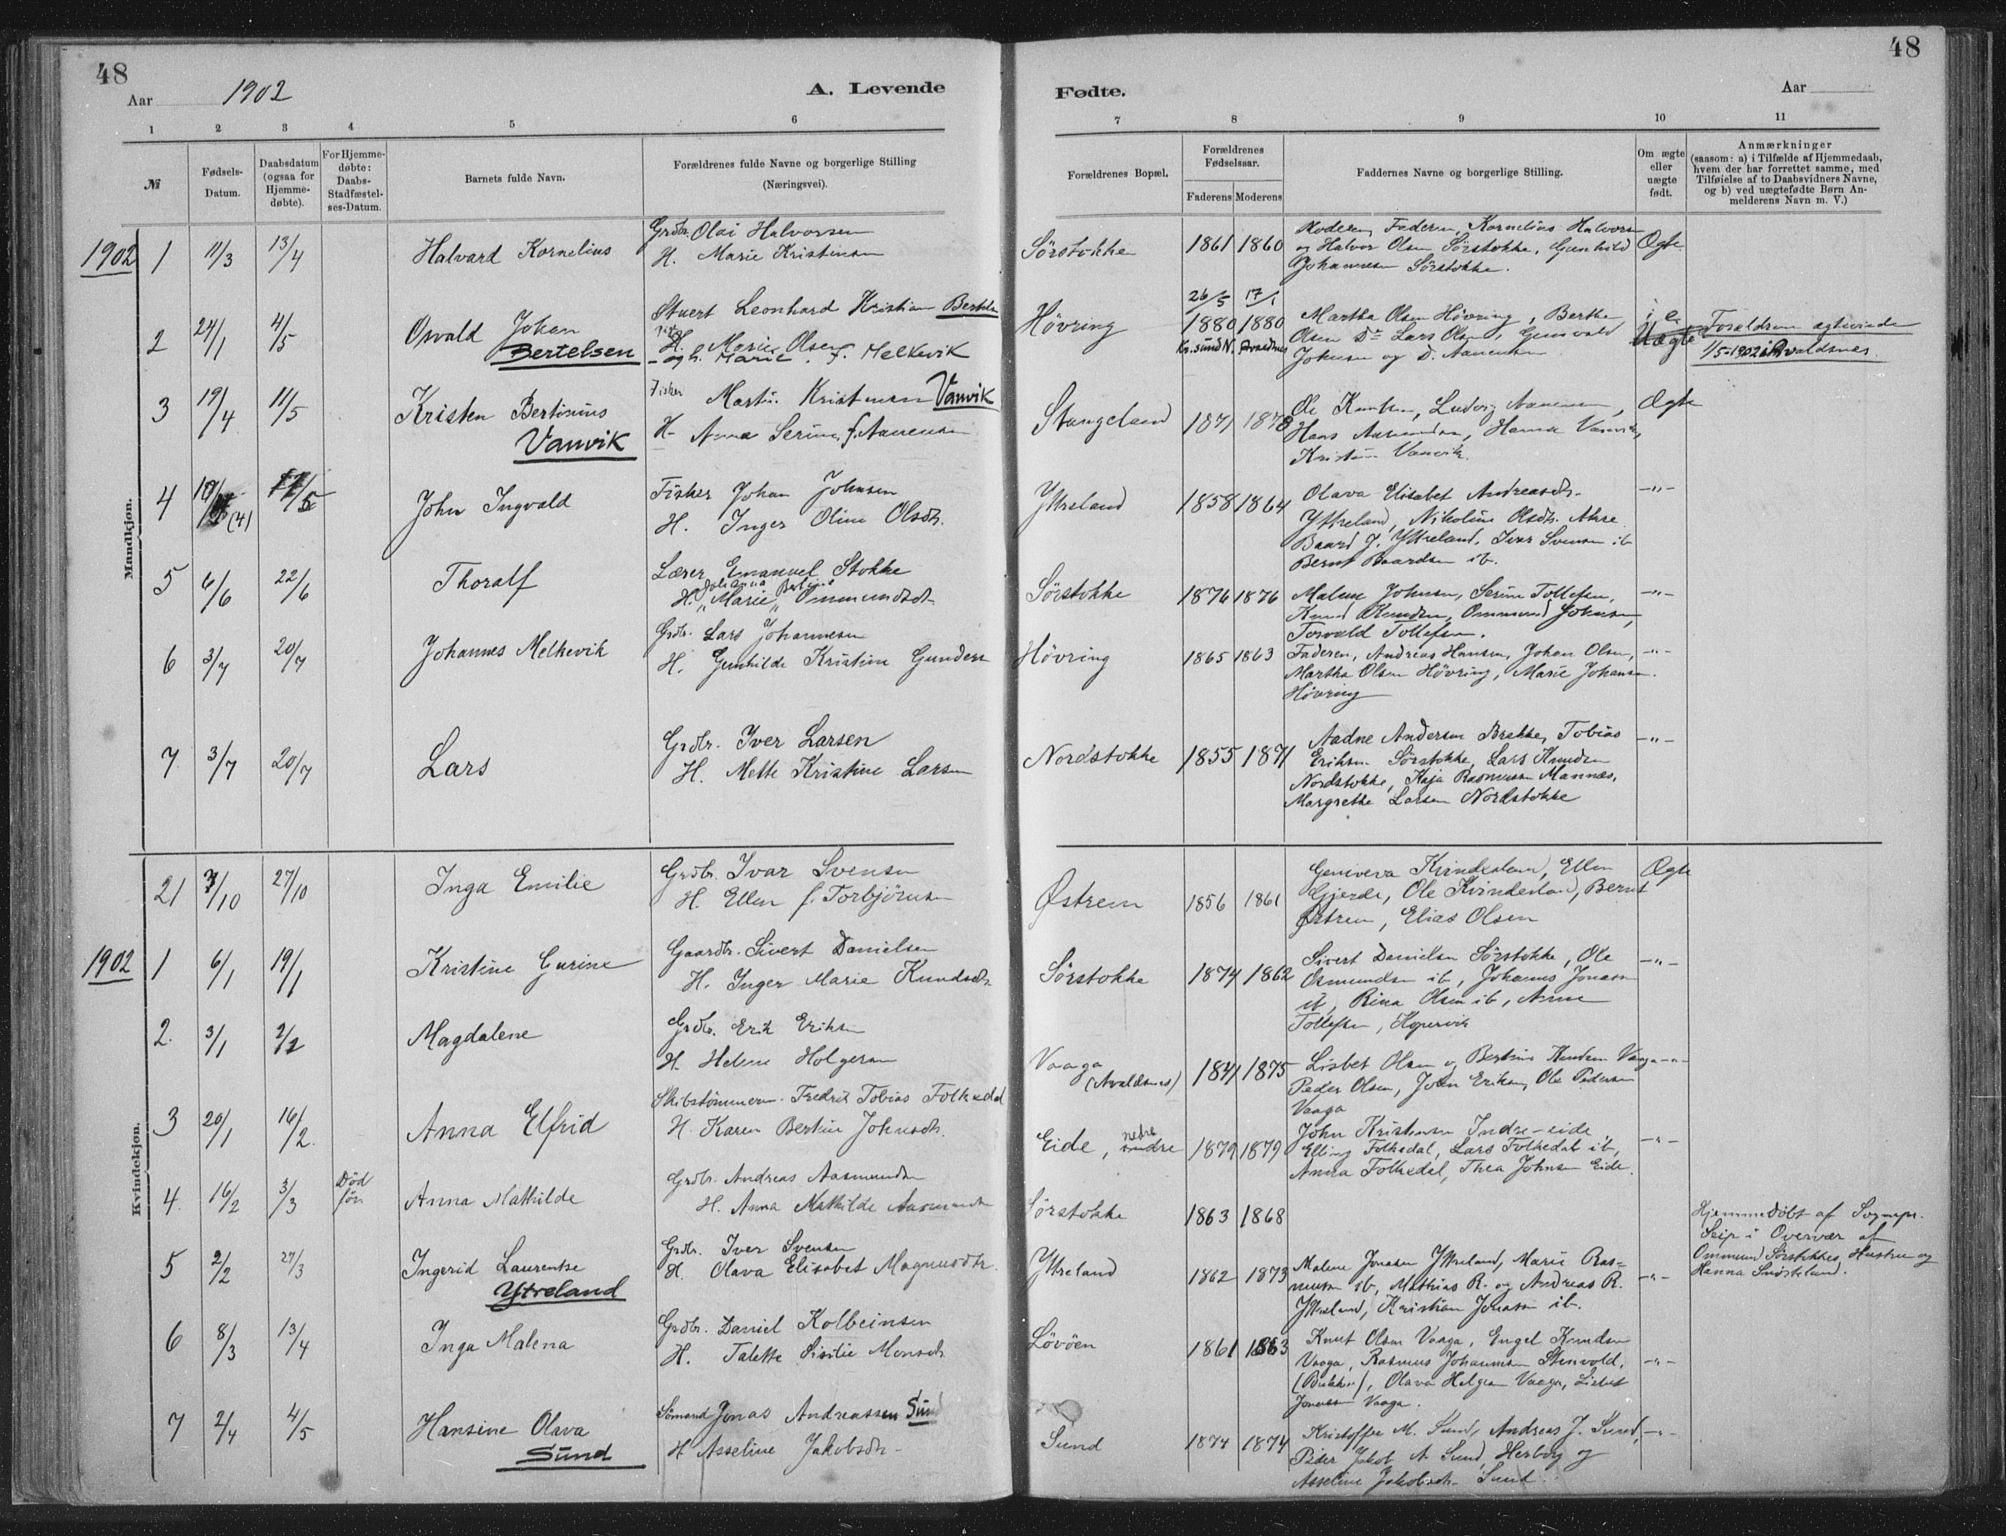 48
Aar 1902
A. Levende
1 2 3 4 5 6
№
Fødsels-Datum.
Daabsdatum (ogsaa for Hjemme-døbte).
For Hjemme-døbte: Daabs-Stadfæstel-ses-Datum.
Barnets fulde Navn.
Forældrenes fulde Navne og borgerlige Stilling
(Næringsvei).
Mandkjøn.
1902 1 11/3 13/4 Halvard Kornelius
Grdbr. Olai Halvorsen
H. Marie Kristensen
2 24/1 4/5 Osvald Johan
Bertelsen
Stuert Leonhard Kristian Bertelsen
H. Marie Olsen
og h. Marie f. Melkevik
3 19/4 11/5 Kristen Bertinius
Vanvik
Fisker Martin Kristensen Vanvik
H. Anna Serine f. Aanensen
4 (4) John Ingvald
Fisker Johan Johnsen
H. Inger Oline Olsdtr.
5 6/6 22/6 Thoralf
Lærer Emanuel Stokke
Johanna Bertine
H. "Marie" Ommundsdtr.
6 3/7 20/7 Johannes Melkevik
Grdbr. Lars Johannesen
H. Gunhilde Kristine Gunders
7 3/7 20/7 Lars
Grdbr. Iver Larsen
H. Mette Kristine Larsen
Kvindekjøn.
21 7/10 27/10 Inga Emilie
Grdbr. Ivar Svensen
H. Ellen f. Torbjørnsen
1902 1 6/1 19/1 Kristine Gurine
Gaardbr. Sivert Danielsen
H. Inger Marie Knudsdtr.
2. 3/1 2/2 Magdalene
Grdbr. Erik Eriksen
H. Helene Holgersen
3 20/1 16/2. Anna Elfrid
Skibstømmerm. Fredrik Tobias Folkedal
H. Karen Bertine Johnsdtr.
4. 16/2 3/3 Død før Anna Mathilde
Grdbr. Andreas Aasmundsen
H. Anna Mathilde Aasmundsen
5 2/2 27/3 Ingerid Laurentse
Ytreland
Grdbr. Iver Svensen
H. Olava Elisabet Magnusdtr.
6 8/3 13/4 Inga Malena
Grdbr. Daniel Kolbeinsen
H. Talette Sisilie Monsdtr.
7 2/4 4/5 Hansine Olava
Sund
Sømand Jonas Andreassen Sund
H. Asseline Jakobsdtr.
48
Fødte.
Aar
7 8 9 10 11
Forældrenes Bopæl.
Forældrenes Fødselsaar.
Faderens Moderens
Faddernes Navne og borgerlige Stilling.
Om ægte eller uægte født.
Anmærkninger
(saasom: a) i Tilfælde af Hjemmedaab,
hvem der har forrettet samme, med
Tilføielse af to Daabsvidners Navne,
og b) ved uægtefødte Børn An-
melderens Navn m. V.)
Sørstokke 1861 1860
Moderen, Faderen, Kornelius Halvorsen
og Halvor Olsen Sørstokke, Gunhild
Johannesen Sørstokke.
Ægte
Høvring 26/5 17/1
1880 1880
Kr.sund N. Avaldsnes
Martha Olsen Høvring, Berthe
Olsen Do Lars Olsen, Gunvald
Johnsen og D. Aanensen
Uægte
Forældrene ægteviede
1/5-1902 i Avaldsnes.
Stangeland 1871 1878
Ole Knutsen, Ludvig Aanensen,
Hans Aamundsen, Hanna Vanvik,
Kristine Vanvik.
Ægte
Ytreland 1858 1864
Olava Elisabet Andreasdtr.
Ytreland, Nikoline Olsdtr. Akre
Baard J. Ytreland. Ivar Svensen ib
Bernt Baardsen ib.
—"—
Sørstokke 1876 1876
Malene Johnsen, Serine Tollefsen,
Knud Knudsen, Ommund Johnsen,
Torvald Tollefsen.
—"—
Høvring 1865 1863
Faderen, Andreas Hansen, Johan Olsen,
Martha Olsen Høvring, Marie Johansen.
Høvring
—"—
Nordstokke 1855 1871
Aadne Andersen Brekke, Tobias
Eriksen Sørstokke, Lars Knudsen
Nordstokke, Kaja Rasmussen Mannes,
Margrethe Larsen Nordstokke
—"—
Østrem 1856 1861
Genoveva Kvindesland, Ellen
Gjerde, Ole Kvindesland, Bernt
Østrem, Elias Olsen
Ægte
Sørstokke 1874 1862
Sivert Danielsen Sørstokke, Ole
Osmundsen ib, Johannes Jonassen
ib, Rina Olsen ib, Anna
Tollefsen, Kopervik
—"—
Vaaga
(Avaldsnes) 1841 1875
Lisbet Olsen og Bertine Knudsen Vaaga —"—
Peder Olsen, John Eriksen, Ole Pedersen
Vaaga
Eide, nedre 1879 1879
John Kristensen Indre-eide
Elling Folkedal, Lars Folkedal ib,
Anna Folkedal, Thea Johnsen Eide.
—"—
Sørstokke 1863 1868
Hjemmedøbt af Sognepr.
Seip i Overvær af
Ommund Sørstokkes Hustru og
Hanna Snørteland.
Ytreland 1862 1873
Malene Jonasen Ytreland, Marie Ras-
mussen ib, Mathias R. og Andreas R.
Ytreland, Kristian Jonassen ib.
—"—
Løvøen 1861 1863
Knut Olsen Vaaga, Engel Knudsen
Vaaga, Rasmus Johannesen Stenvold,
Olava Helgesen Vaaga, Lisbet
Jonassen Vaaga.
—"—
Sund 1874 1874
Kristoffer M. Sund, Andreas J. Sund,
Peder Jakob A Sund, Herborg og
Asseline Jakobsdtr. Sund.
—"—